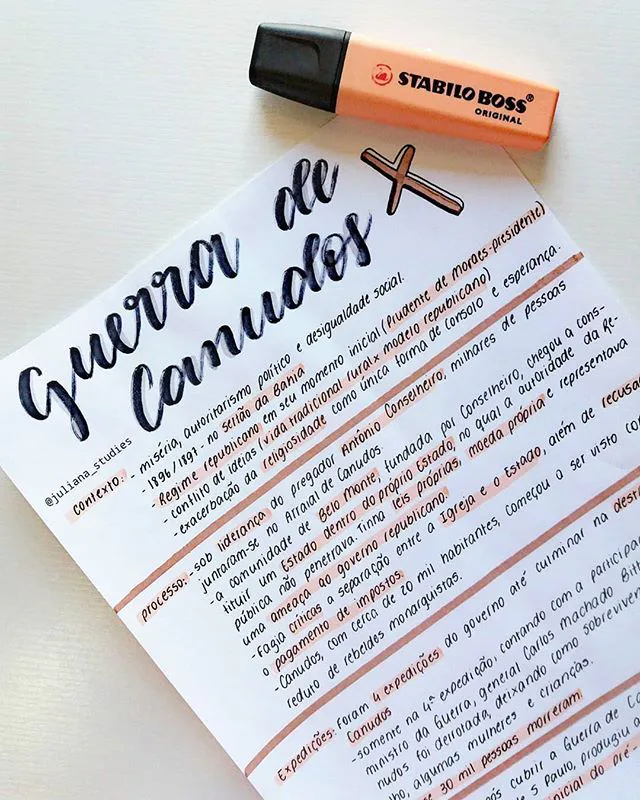 STABILO BOSS®
ORIGINAL
Guerra de
Canudos
@juliana_studies
contexto: - miséria, autoritarismo político e desigualdade social.
- 1896/1897 - no sertão da Bahia
- Regime republicano em seu momento inicial (Prudente de Moraes-presidente)
- conflito de ideias (vida tradicional rural x modelo republicano)
- exacerbação da religiosidade como única forma de consolo e esperança.
processo: - sob liderança do pregador Antônio Conselheiro, milhares de pessoas
juntaram-se no Arraial de Canudos
- a comunidade de Belo Monte, fundada por Conselheiro, chegou a cons-
tituir um Estado dentro do próprio Estado no qual a autoridade da Re-
pública não penetrava. Tinha leis próprias, moeda própria e representava
uma ameaça ao governo republicano.
- Fazia críticas a separação entre a Igreja e o Estado, além de recusar
o pagamento de impostos.
- Canudos, com cerca de 20 mil habitantes, começou a ser visto com
reduto de rebeldes monarquistas.
Expedições: foram 4 expedições do governo até culminar na
Canudos
- somente na 4ª expedição, contando com a participa
ministro da Guerra, general Carlos Machado Bitt
nudos foi derrotada, deixando como sobreviven
lho, algumas mulheres e crianças.
e 30 mil pessoas morreram
ós cubrir a Guerra de C
S. Paulo, produziu
inicial do pré-